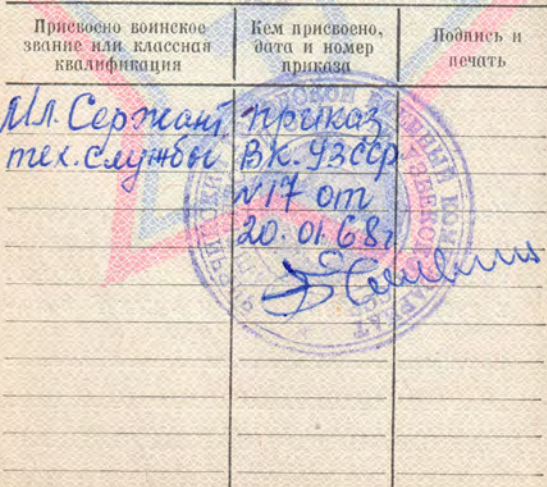 Присвоено воинское звание или классная квалификация
Кем присвоено, дата и номер приказа
Подпись и печать
Мл. Сержант приказ
тех. службы ВК. УзССР
№17 от
20.01.68г.